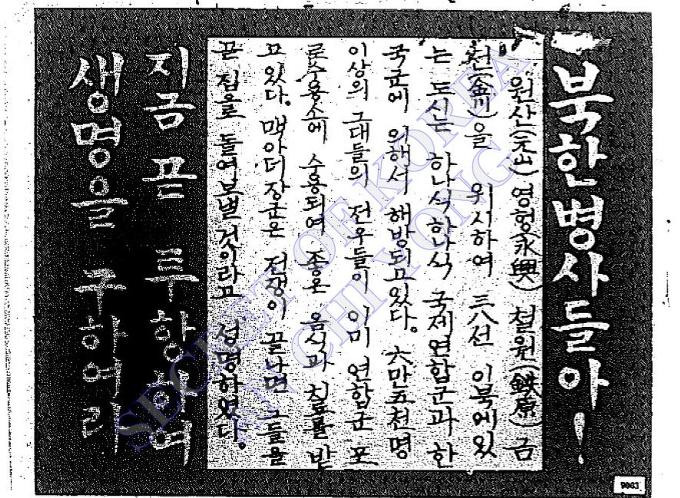 북한병사들아!
원산(元山) 영헝(永興) 철원(鉄原) 금
천(金川)을 위시하여 三八선 이북에있
는 도시는 하나식 하나식 국제연합군과 한
국군에 의해서 해방되고있다. 六만五천명
이상의 그대들의 전우들이 이미 연합군 포
로수용소에 수용되여 좋은 음식과 치료를 받
고있다. 맥아더장군은 전쟁이 끝나면 그들을
곧 집으로 돌여보낼것이라고 성명하였다.
지금 곧 투항하여
생명을 구하여라
SECRET OF KOREA
AN CHI YONG